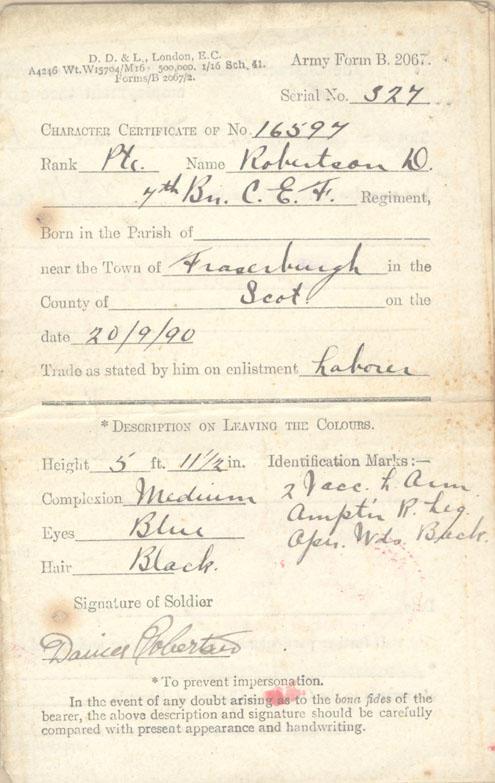 D. D. & L., London, E.C.
A4246 Wt.W15704/M16 500,000. 1/16 Sch. 41.
Forms/B 2067/2.
Army Form B. 2067.
Serial No. 327
CHARACTER CERTIFICATE OF No. 16597
Rank Pte. Name Robertson D.
7th Bn. C. E. F. Regiment,
Born in the Parish of
near the Town of Fraserburgh in the
County of Scot. on the
date 20/9/90
Trade as stated by him on enlistment Laborer
* DESCRIPTION ON LEAVING THE COLOURS.
Height 5 ft. 11 1/2 in. Identification Marks:—
Complexion Medium 2 Vacc. L. Arm
Amptn R. Leg.
Eyes Blue Opr. Wds. Back.
Hair Black.
Signature of Soldier
Robertson
* To prevent impersonation.
In the event of any doubt arising as to the bona fides of the
bearer, the above description and signature should be carefully
compared with present appearance and handwriting.